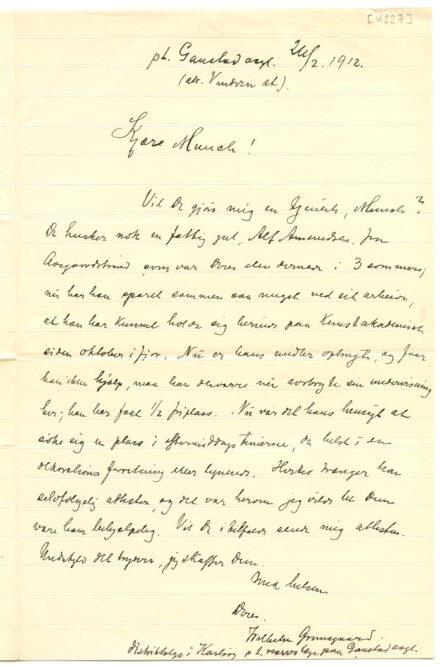 [K227]
pt. Gaustad asyl. 24/2. 1912.
(adr. Vinderen st.)
Kjære Munch!
Vil De gjøre mig en tjeneste, Munch?
De husker nok en fattig gut, Alf Amundsen, fra
Aasgaardstrand, som var Deres elev dernede i 3 sommere;
nu har han sparet sammen saa meget ved sit arbeide,
at han har kunnet holde sig herinde paa Kunstakademiet
siden oktober ifjor. Nu er hans midler opbrugt, og faar
han ikke hjælp, maa han desværre nu avbryte sin undervisning
her; han har faat 1/2 friplass. Nu var det hans hensigt at
søke sig en plass i eftermiddagstimerne, da helst i en
dekorations forretning eller lignende. Hertil trænger han
selvfølgelig attester, og det var herom jeg vilde be Dem
være ham behjælpelig. Vil De i tilfælde sende mig attesten.
Undskyld det bryderi, jeg skaffer Dem.
Med hilsen
Deres
Vilhelm Grimsgaard.
distriktslæge i Karlsøy p.t. reservelæge paa Gaustad asyl.